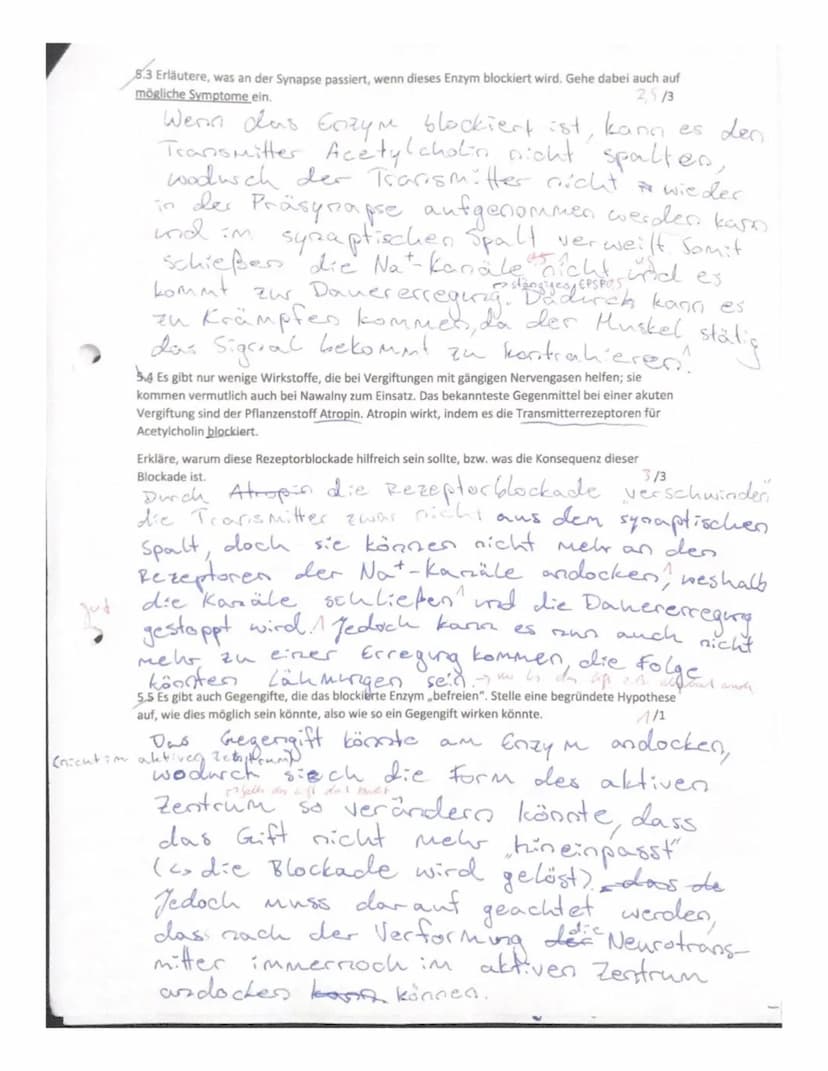 5.3 Erläutere, was an der Synapse passiert, wenn dieses Enzym blockiert wird. Gehe dabei auch auf
mögliche Symptome ein.
2,5/3
Wenn das Enzym blockiert ist, kann es den
Transmitter Acetylcholin nicht spalten,
wodurch der Transmitter nicht wieder
in der Präsynapse aufgenommen werden kann
und im synaptischen Spalt verweilt. Somit
schießen die Na⁺-Kanäle nicht und es
→ ständiges EPSP
kommt zur Dauererregung. Dadurch kann es
zu Krämpfen kommen, da der Muskel stätig
das Signal bekommt zu kontrahieren.
5.4 Es gibt nur wenige Wirkstoffe, die bei Vergiftungen mit gängigen Nervengasen helfen; sie
kommen vermutlich auch bei Nawalny zum Einsatz. Das bekannteste Gegenmittel bei einer akuten
Vergiftung sind der Pflanzenstoff Atropin. Atropin wirkt, indem es die Transmitterrezeptoren für
Acetylcholin blockiert.
Erkläre, warum diese Rezeptorblockade hilfreich sein sollte, bzw. was die Konsequenz dieser
Blockade ist.
3/3
Durch Atropin die Rezeptorblockade „verschwinden"
die Transmitter zwar nicht aus dem synaptischen
Spalt, doch sie können nicht mehr an den
Rezeptoren der Na⁺-Kanäle andocken, weshalb
die Kanäle schließen und die Dauererregung
gut
gestoppt wird. Jedoch kann es nun auch nicht
mehr zu einer Erregung kommen, die Folge
könnten Lähmungen sein.
5.5 Es gibt auch Gegengifte, die das blockierte Enzym „befreien". Stelle eine begründete Hypothese
auf, wie dies möglich sein könnte, also wie so ein Gegengift wirken könnte.
1/1
Das Gegengift könnte am Enzym andocken,
(nicht im aktiven Zentrum)
wodurch sich die Form des aktiven
Zentrum so verändern könnte, dass
das Gift nicht mehr „hineinpasst"
(↳ die Blockade wird gelöst), das de
Jedoch muss darauf geachtet werden,
das nach der Verformung die Neurotrans-
mitter immernoch im aktiven Zentrum
andocken kann können.